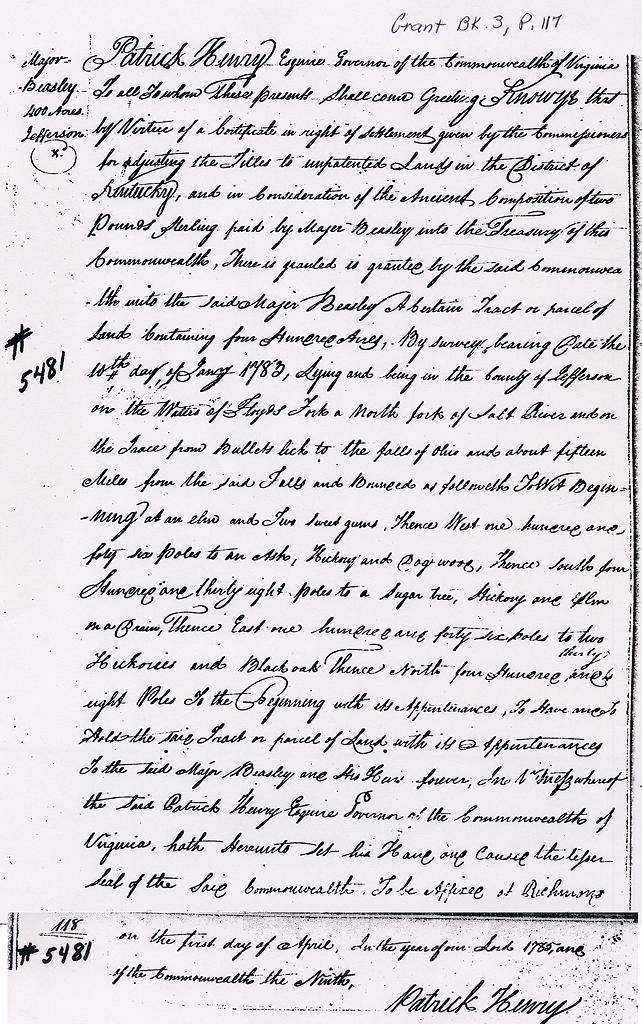 Grant BK. 3, P. 117
Major
Beasley
400 Acres
Jefferson
x
Patrick Henry Esquire Governor of the Commonwealth of Virginia
To all To whom These presents Shall come Greeting Know Ye that
by Virtue of a Certificate in right of settlement given by the Commissioners
for adjusting the Titles to unpatented Lands in the District of
Kentucky, and in Consideration of the Ancient Composition of two
Pounds Sterling paid by Major Beasley into the Treasury of this
Commonwealth, There is granted is grantee by the said Commonwea
-lth unto the said Major Beasley A Certain Tract or parcel of
Land Containing four Hundred Acres, By survey, bearing Date the
#
5481
10th day of Jany 1783, Lying and being in the County of Jefferson
on the Waters of Floyds Fork a North fork of Salt River and on
the Trace from Bullets lick to the falls of Ohio and about fifteen
Miles from the said Falls and Bounded as followeth To Wit Begin-
-ning at an elm and Two sweet gums, Thence West one hundred and
forty six Poles to an Ash, Hickory and Dog wood, Thence South four
Hundred and thirty eight poles to a Sugar tree, Hickory and Elm
on a Drain, Thence East one hundred and forty six poles to two
Hickories and Black oak Thence North four Hundred and thirty
eight Poles To the Beginning with its Appurtenances, To Have and To
Hold the said Tract or parcel of Land with its Appurtenances
To the said Major Beasley and His Heirs forever, In Witness whereof
the Said Patrick Henry Esquire Governor of the Commonwealth of
Virginia, hath Hereunto Set his Hand and Caused the lesser
Seal of the Said Commonwealth To be Affixed at Richmond
118
# 5481
on the first day of April, In the year of our Lord 1785, and
of the Commonwealth the Ninth,
Patrick Henry